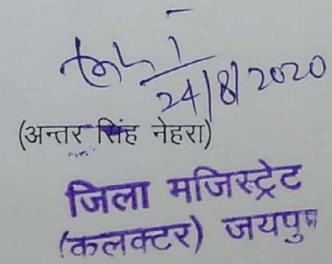 24/8/2020
(अन्तर सिंह नेहरा)
जिला मजिस्ट्रेट
(कलक्टर) जयपुर